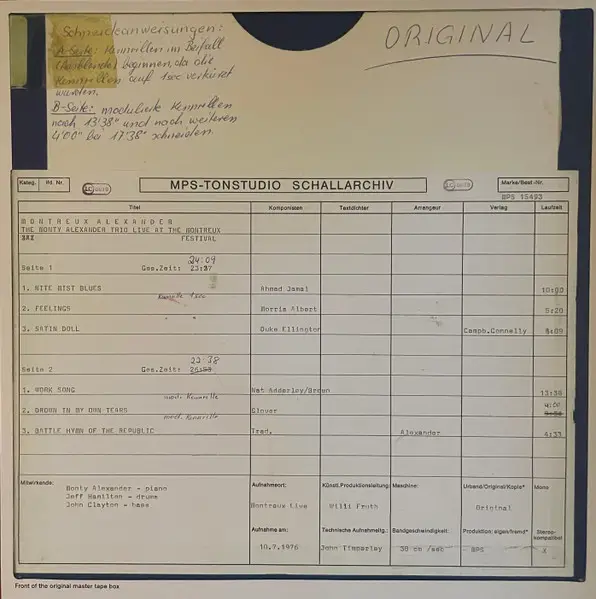 Schneideanweisungen:
A-Seite: Kennrillen im Beifall
beginnen, da die
Kennrillen auf 1sec verkürzt
wurden.
B-Seite: modulierte Kennrillen
nach 13'38" und nach weiteren
4'00" bei 17'38" schneiden.
ORIGINAL
Kateg. lfd. Nr.
MPS-TONSTUDIO SCHALLARCHIV
Marke/Best.-Nr.
MPS 15493
Titel Komponisten Textdichter Arrangeur Verlag Laufzeit
MONTREUX ALEXANDER
THE MONTY ALEXANDER TRIO LIVE AT THE MONTREUX
FESTIVAL
24:09
Seite 1 Ges.Zeit: 23:37
1. NITE MIST BLUES Ahmad Jamal 10:00
Kennrille 1sec
2. FEELINGS Morris Albert 5:20
3. SATIN DOLL Duke Ellington Camph.Connelly 8:09
23:38
Seite 2 Ges.Zeit:
1. WORK SONG Nat Adderley/Brown 13:38
mod. Kennrille
2. DROWN IN MY OWN TEARS Glover 4:00
mod. Kennrille
3. BATTLE HYMN OF THE REPUBLIC Trad. Alexander 4:33
Mitwirkende:
Monty Alexander - piano
Jeff Hamilton - drums
John Clayton - bass
Aufnahmeort:
Montreux Live
Künstl. Produktionsleitung:
Willi Fruth
Maschine:
Urband/Original/Kopie*
Original
Mono
Aufnahme am:
10.7.1976
Technische Aufnahmeltg.:
John Timperley
Bandgeschwindigkeit:
38 cm /sec
Produktion: eigen/fremd*
MPS
Stereo-
kompatibel
x
Front of the original master tape box